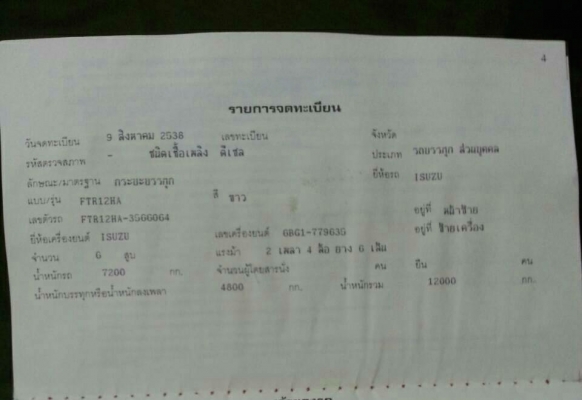 4
รายการจดทะเบียน
วันจดทะเบียน 9 สิงหาคม 2538 เลขทะเบียน จังหวัด
รหัสตรวจสภาพ - ชนิดเชื้อเพลิง ดีเซล ประเภท รถบรรทุก ส่วนบุคคล
ลักษณะ/มาตรฐาน กระบะบรรทุก ยี่ห้อรถ ISUZU
แบบ/รุ่น FTR12HA สี ขาว
เลขตัวรถ FTR12HA-3566064 อยู่ที่ คัสซีขวา
ยี่ห้อเครื่องยนต์ ISUZU เลขเครื่องยนต์ 6BG1-779635 อยู่ที่ ซ้ายเครื่อง
จำนวน 6 สูบ แรงม้า 2 เพลา 4 ล้อ ยาง 6 เส้น
น้ำหนักรถ 7200 กก. จำนวนผู้โดยสารนั่ง คน ยืน คน
น้ำหนักบรรทุกหรือน้ำหนักลงเพลา 4800 กก. น้ำหนักรวม 12000 กก.